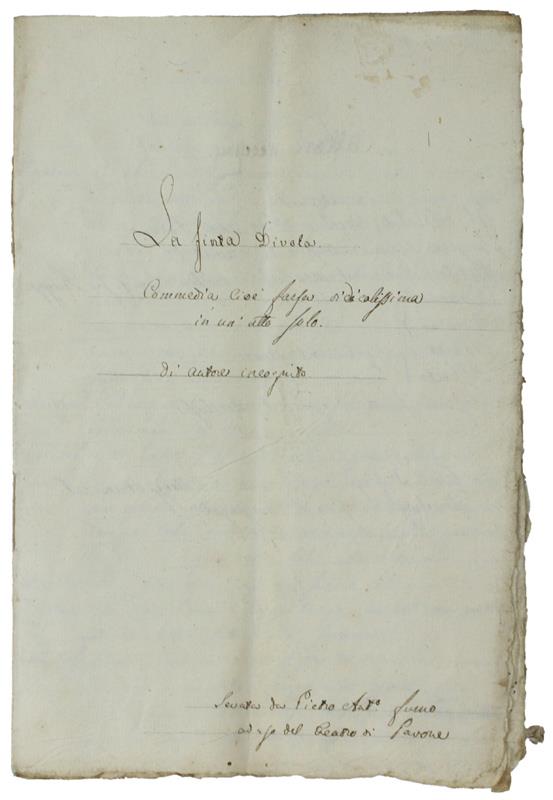 La finta Divota.
Commedia Cioè farsa ridicolissima
in un' atto solo.
di autore incognito
da Pietro Ant.º
del Teatro di Pavone